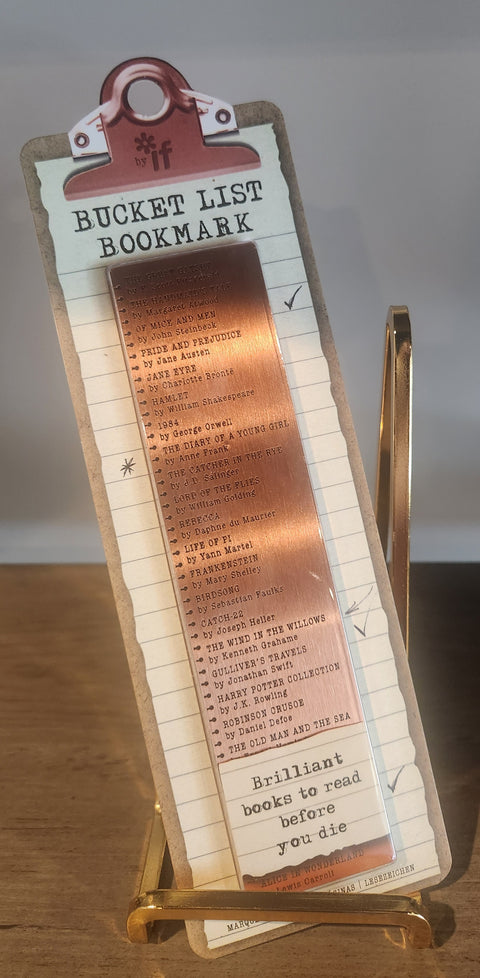 *
by if
BUCKET LIST
BOOKMARK
THE HANDMAID'S TALE
by Margaret Atwood
OF MICE AND MEN
by John Steinbeck
PRIDE AND PREJUDICE
by Jane Austen
JANE EYRE
by Charlotte Brontë
HAMLET
by William Shakespeare
1984
by George Orwell
THE DIARY OF A YOUNG GIRL
by Anne Frank
THE CATCHER IN THE RYE
by J.D. Salinger
LORD OF THE FLIES
by William Golding
REBECCA
by Daphne du Maurier
LIFE OF PI
by Yann Martel
FRANKENSTEIN
by Mary Shelley
BIRDSONG
by Sebastian Faulks
CATCH-22
by Joseph Heller
THE WIND IN THE WILLOWS
by Kenneth Grahame
GULLIVER'S TRAVELS
by Jonathan Swift
HARRY POTTER COLLECTION
by J.K. Rowling
ROBINSON CRUSOE
by Daniel Defoe
THE OLD MAN AND THE SEA
Brilliant
books to read
before
you die
ALICE IN WONDERLAND
Lewis Carroll
| LESEZEICHEN